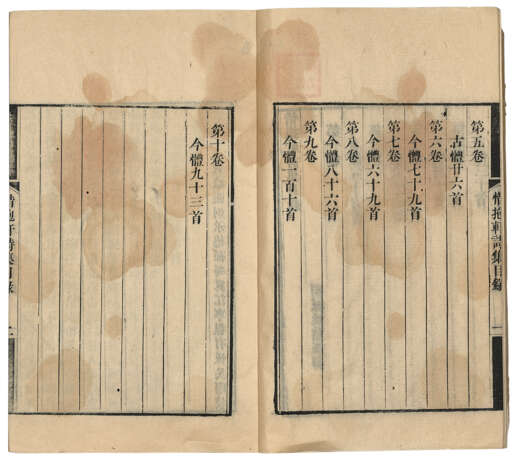 惜抱軒詩集目錄
第五卷
古體廿六首
第六卷
今體七十九首
第七卷
今體六十九首
第八卷
今體八十六首
第九卷
今體一百十首
第十卷
今體九十三首